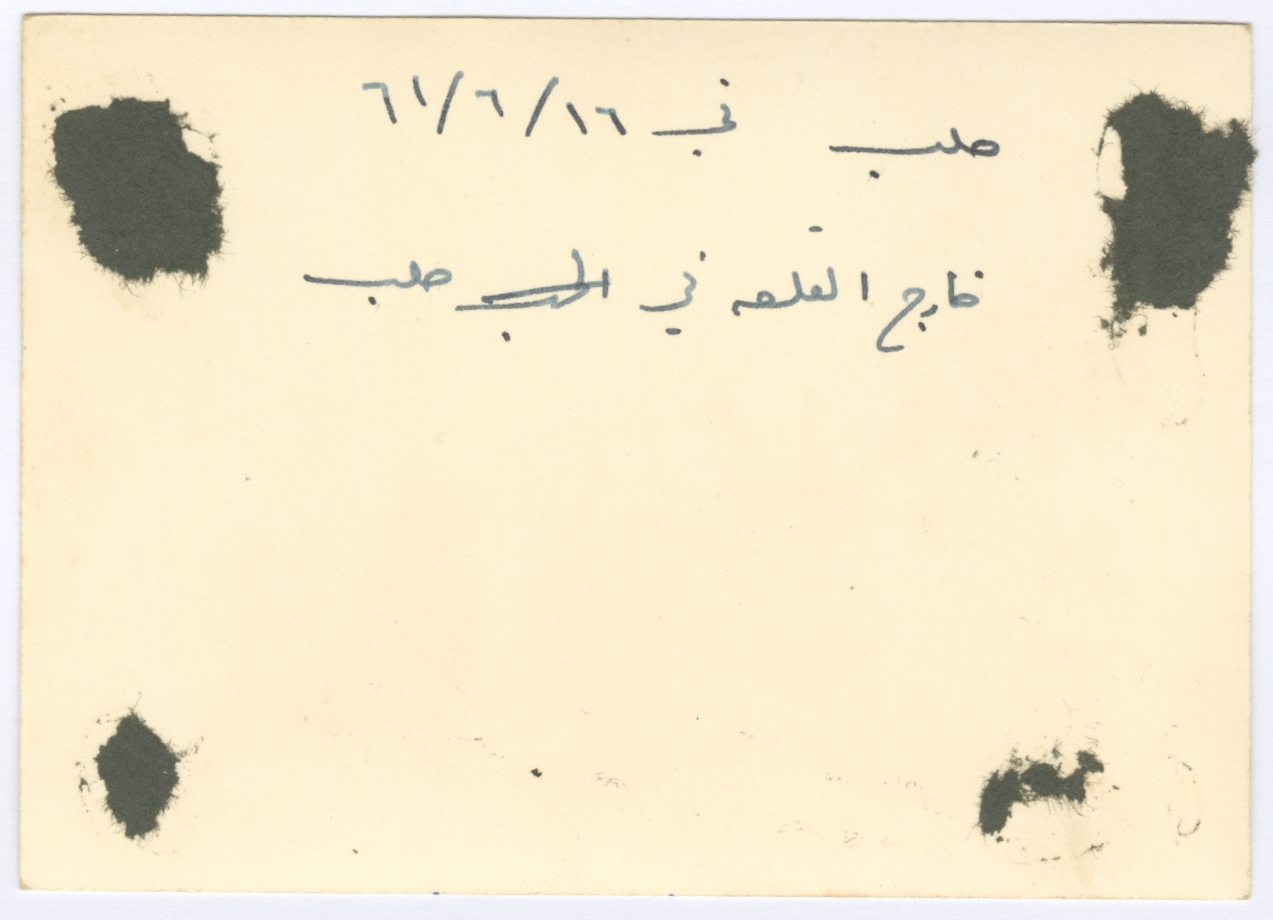 حلب في ١٦/٦/٦١
خارج القلعه في حلب